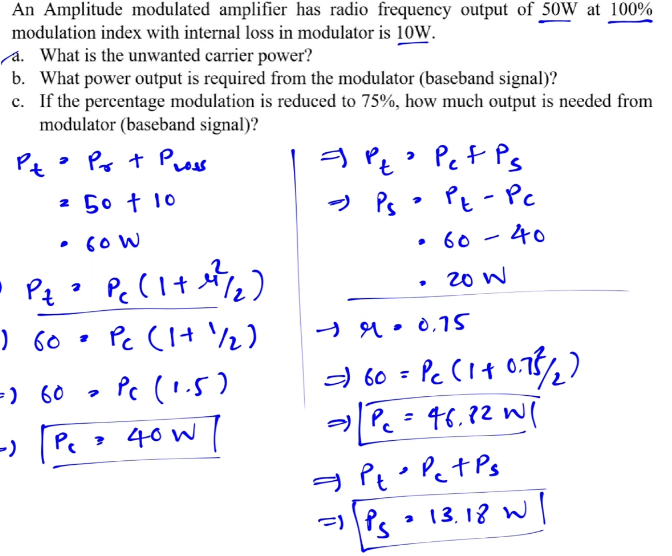 An Amplitude modulated amplifier has radio frequency output of 50W at 100%
modulation index with internal loss in modulator is 10W.
a. What is the unwanted carrier power?
b. What power output is required from the modulator (baseband signal)?
c. If the percentage modulation is reduced to 75%, how much output is needed from
modulator (baseband signal)?
Pt = Pr + Ploss
= 50 + 10
= 60 W
Pt = Pc (1 + μ²/2)
) 60 = Pc (1 + 1/2)
=) 60 = Pc (1.5)
=) Pc = 40 W
⇒ Pt = Pc + Ps
⇒ Ps = Pt - Pc
= 60 - 40
= 20 W
→ μ = 0.75
⇒ 60 = Pc (1 + 0.75²/2)
⇒ Pc = 46.82 W
⇒ Pt = Pc + Ps
⇒ Ps = 13.18 W